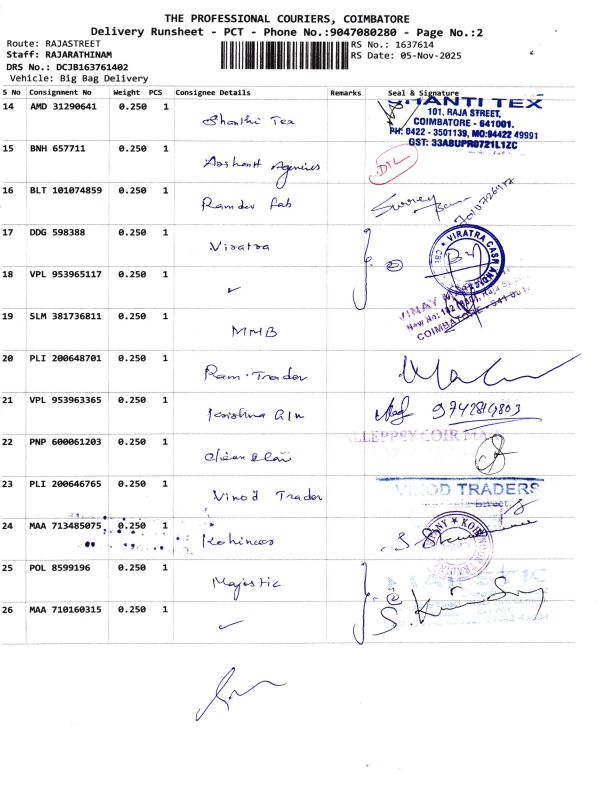 THE PROFESSIONAL COURIERS, COIMBATORE
Delivery Runsheet - PCT - Phone No.:9047080280 - Page No.:2
Route: RAJASTREET RS No.: 1637614
Staff: RAJARATHINAM RS Date: 05-Nov-2025
DRS No.: DCJB163761402
Vehicle: Big Bag Delivery
S No Consignment No Weight PCS Consignee Details Remarks Seal & Signature
14 AMD 31290641 0.250 1 Shanthi Tex
SHANTI TEX
101, RAJA STREET,
COIMBATORE - 641001.
PH: 0422 - 3501139, MO:94422 49991
GST: 33ABUPR0721L1ZC
15 BNH 657711 0.250 1 Agencies D/L
16 BLT 101074859 0.250 1 Ramdev fab
17 DDG 598388 0.250 1 Viratra
VIRATRA
18 VPL 953965117 0.250 1 ✓
VINAY
COIMBATORE
19 SLM 381736811 0.250 1 MMB
20 PLI 200648701 0.250 1 Ram. Trader
21 VPL 953963365 0.250 1 Krishna 9742814803
LLEPPEY COIR
22 PNP 600061203 0.250 1
23 PLI 200646765 0.250 1 Vinod Trader
VINOD TRADERS
24 MAA 713485075 0.250 1 Kohinoor
25 POL 8599196 0.250 1 Majestic
26 MAA 710160315 0.250 1 ✓